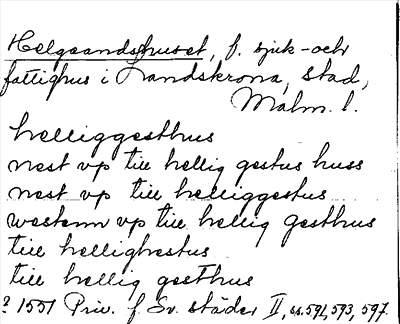 Helgeandshuset, f. sjuk- och
fattighus i Landskrona, stad,
Malm. l.
helliggesthus
nest vp till hellig gestus huss
nest vp till helliggestus
westenn vp till hellig gesthus
till hellighestus
till hellig gesthus
? 1551 Priv. f. Sv. städer II, ss. 591, 593, 597.